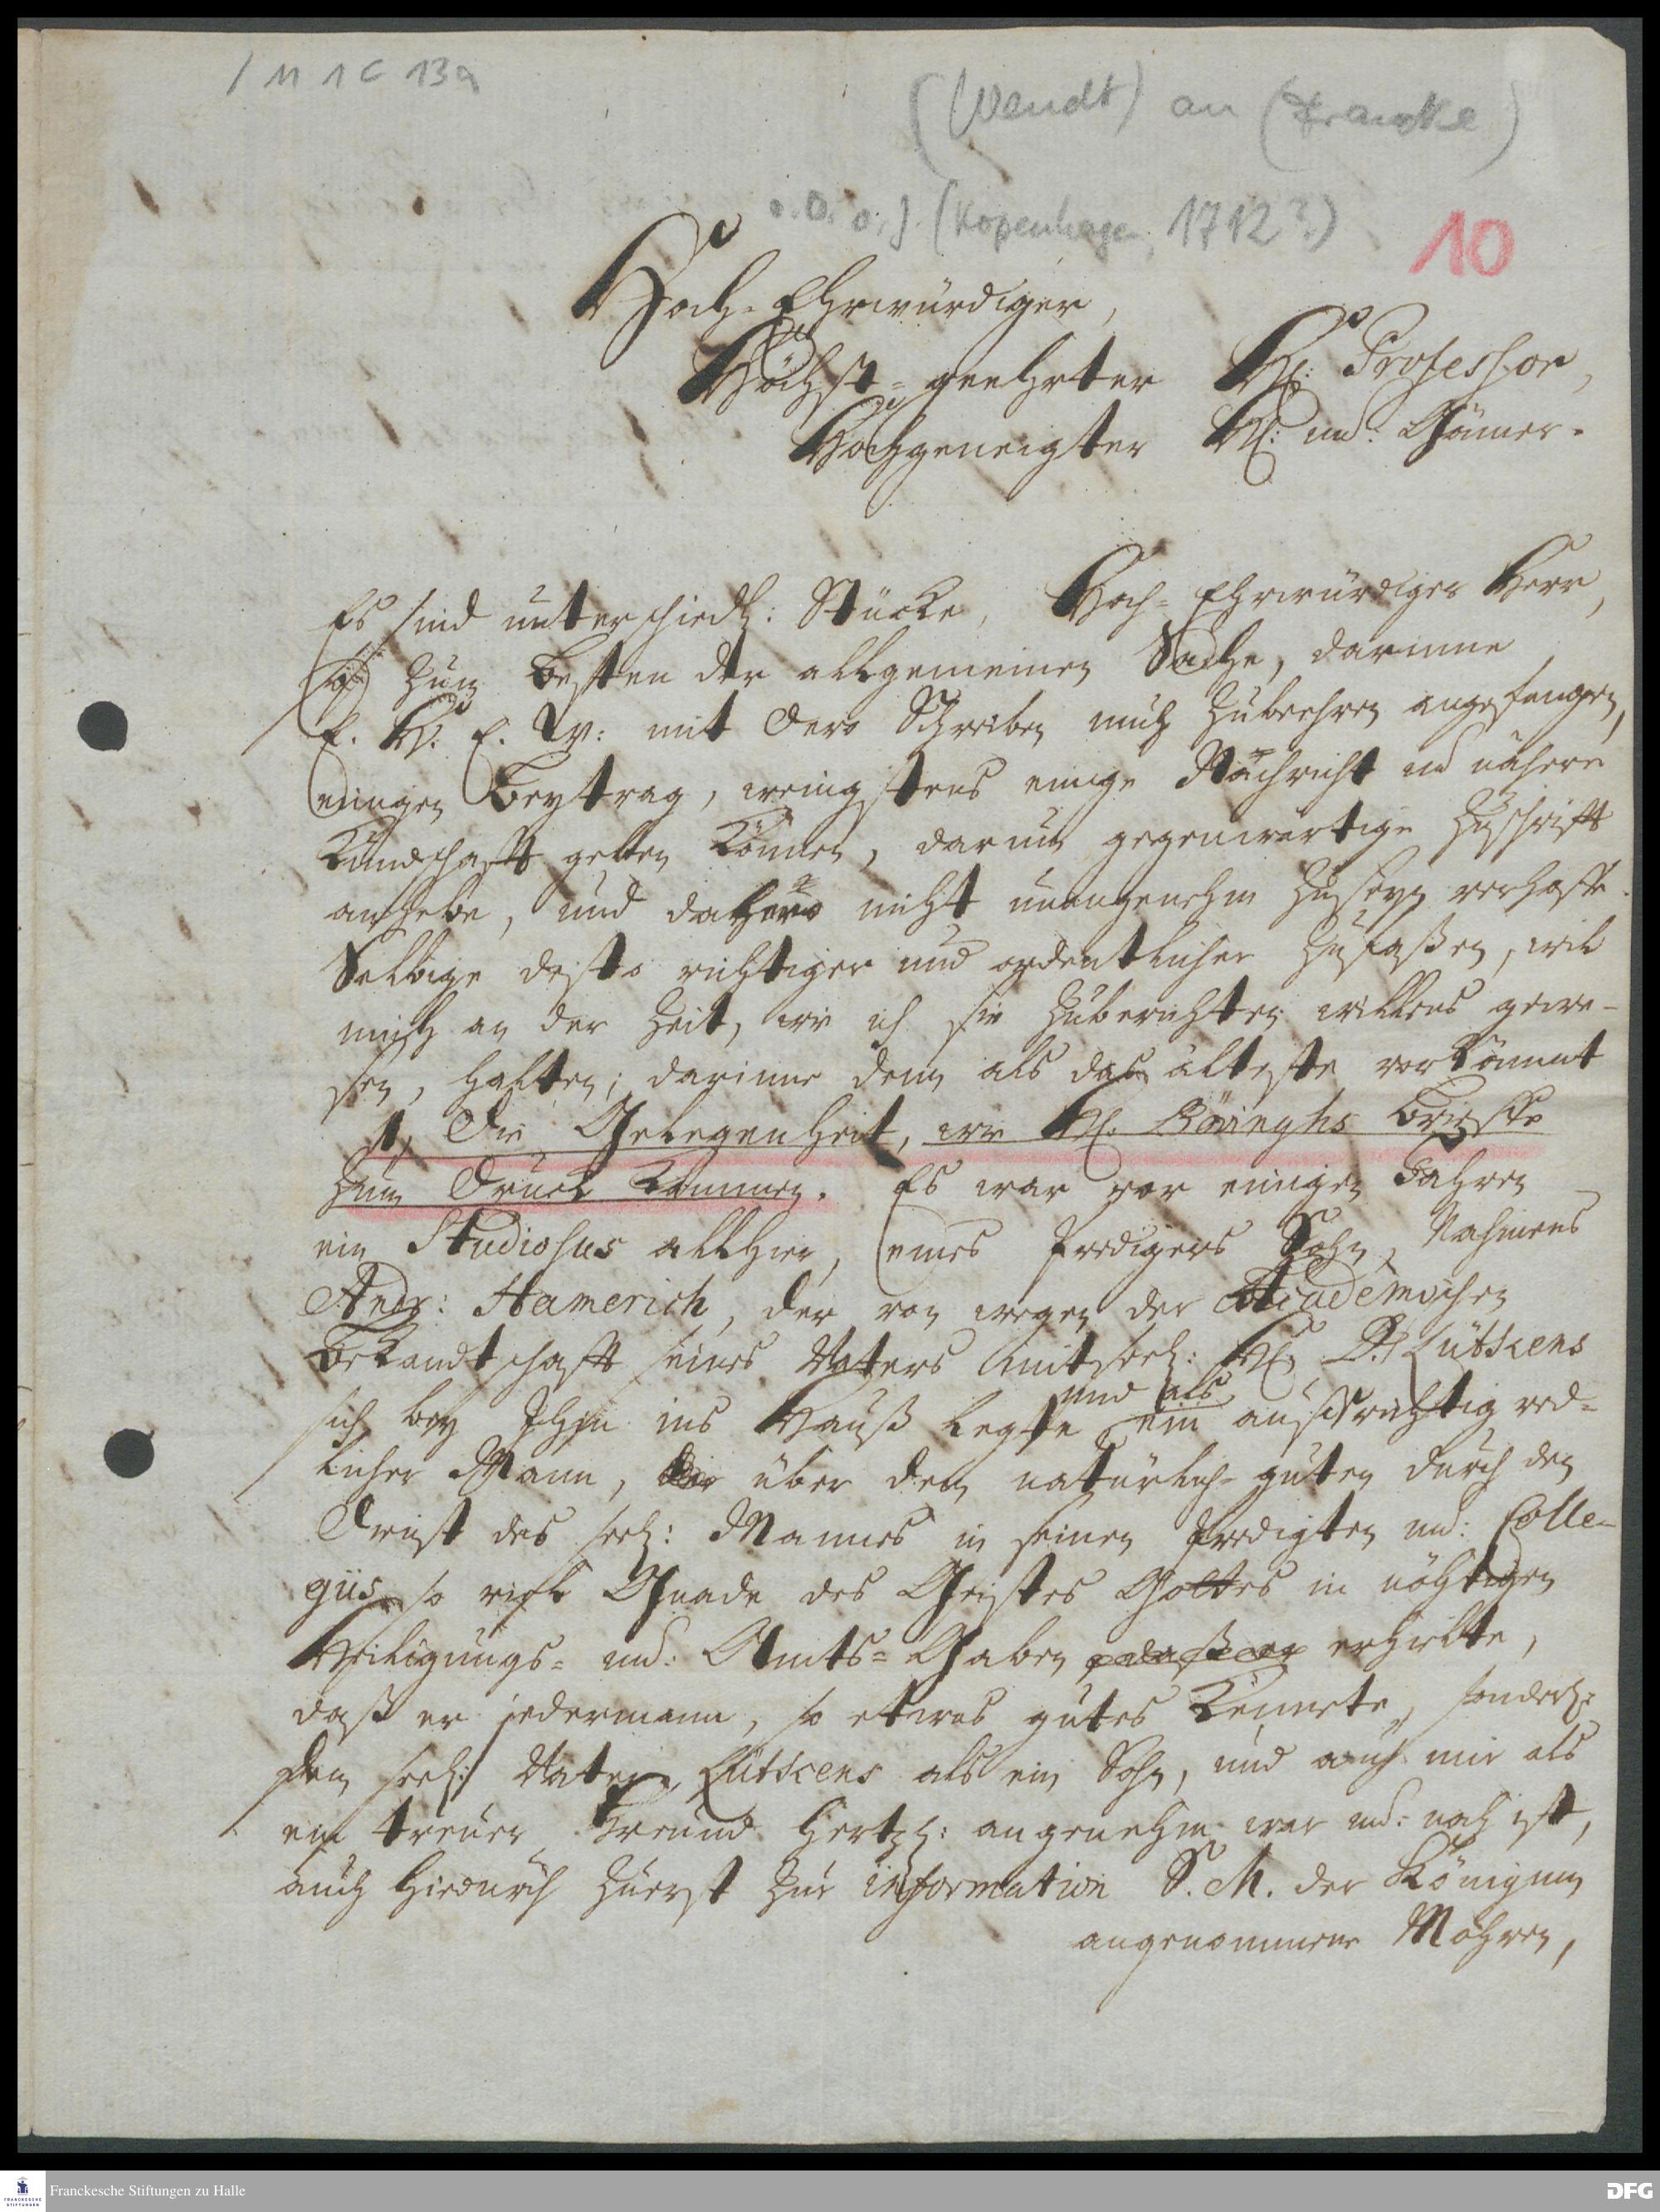 / 11 1 C 13a
(Wendt) an (Francke)
o. O. o. J. (Kopenhagen, 1712?)
10
Hoch-Ehrwürdiger,
Höchst-geehrter H. Professor,
Hochgeneigter H. und. Gönner.
Es sind unterschiedl: Stücke, Hoch-Ehrwürdiger Herr,
so zum Besten der allgemeinen Sache, darinne
E. H. E. W: mit Dero Schreiben mich zubeehren angefangen,
einigen Beytrag, wenigstens einige Nachricht und nähere
Kundschafft geben können, darum gegenwärtige Zuschrifft
anhebe, und dahero nicht unangenehm zuseyn verhoffe.
Selbige desto richtiger und ordentlicher zufaßen, wil
mich an der Zeit, wie ich sie zuberichten willens gewe-
sen, halten; darinne denn als das älteste vorkömmt
1, Die Gelegenheit, wie H. Bövinghs Brieffe
zum Druck kommen. Es war vor einigen Jahren
ein Studiosus allhier, eines Predigers Sohn, Nahmens
Andr: Hamerich, der von wegen der Academischen
Bekandtschafft seines Vaters mit seel: H. D. Lütkens
sich bey Ihm ins Hauß legte und als ein auffrichtig red-
licher Mann, über dem natürlich-guten durch den
Dienst des seel: Mannes in seinen Predigten und: Colle-
giis so viel Gnade des Geistes Gottes in nöhtigen
Heiligungs- und: Amts-Gaben erhielte,
daß er jedermann, so etwas gutes kennete, sonderl:
dem seel: Vater Lütkens als ein Sohn, und auch mir als
ein treuer Freund hertzl: angenehm war und: noch ist,
auch hiedurch zuerst zur information S. M. der Königinn
angenommene Mohren,
Franckesche Stiftungen zu Halle
DFG